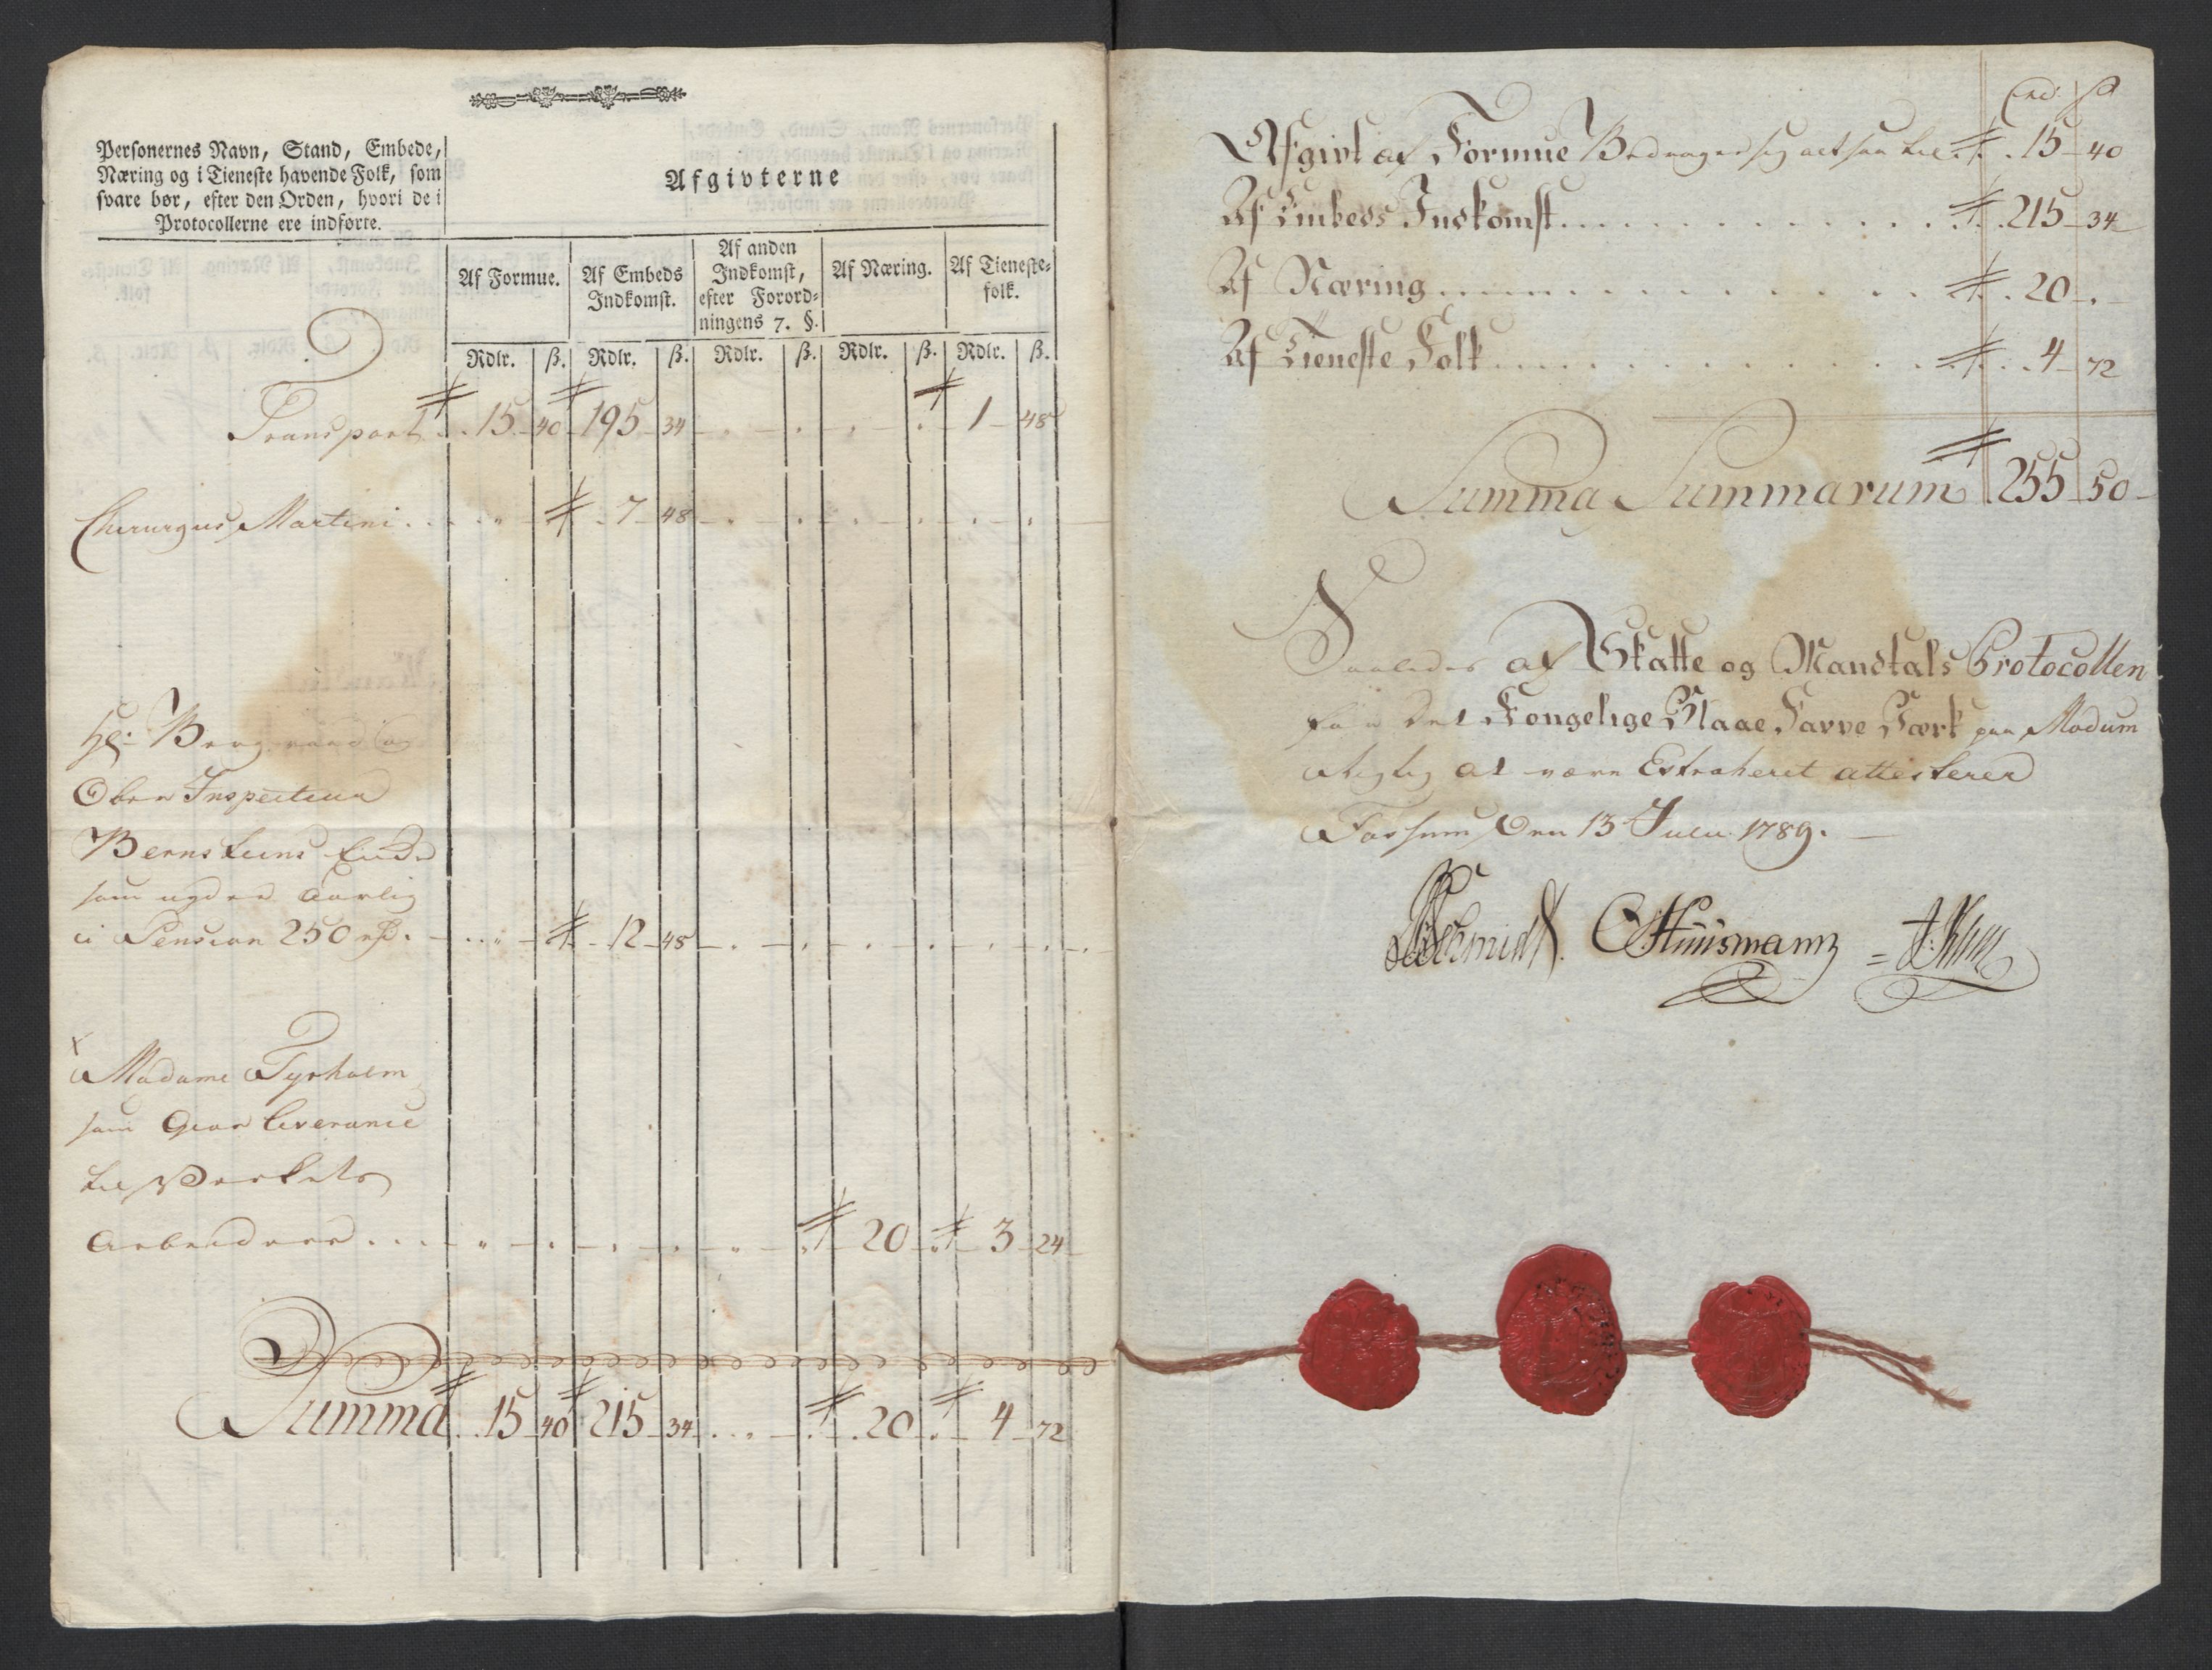 Personernes Navn, Stand, Embede,
Næring og i Tieneste havende Folk, som
svare bør, efter den Orden, hvori de i
Protocollerne ere indførte.
Afgivterne
Af Formue.
Af Embeds
Indkomst.
Af anden
Indkomst,
efter Forord-
ningens 7. §.
Af Næring.
Af Tieneste-
folk.
Rdlr. ß. Rdlr. ß. Rdlr. ß. Rdlr. ß. Rdlr. ß.
Transport 15 40 195 34 1 48
Chirurgus Martini 7 48
Hr. Bergraad og
Ober Inspecteur
Bernsteins Enke
som nyder Aarlig
i Pension 250 rd. 12 48
x
Madame Tyrholm
som Giør Leverance
til Verkets
Arbeidere 20 3 24
Summa 15 40 215 34 20 4 72
Afgivt af Formue Bedrager sig altsaa til 15 40
Af Embeds Indkomst 215 34
Af Næring 20
Af Tieneste Folk 4 72
Summa Summarum 255 50
Saaledes af Skatte og Mandtals Protocollen
for Det Kongelige Blaae Farve Værk paa Modum
Rigtig at være Extraheret attesterer
Fossum Den 13 Julii 1789.
Schmidt. Huusmann